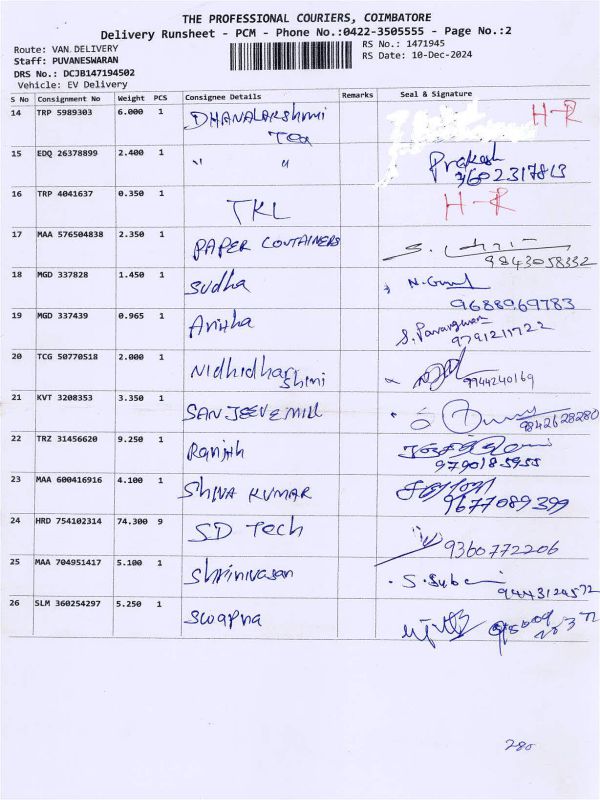 THE PROFESSIONAL COURIERS, COIMBATORE
Delivery Runsheet - PCM - Phone No.:0422-3505555 - Page No.:2
Route: VAN DELIVERY
RS No.: 1471945
Staff: PUVANESWARAN
RS Date: 10-Dec-2024
DRS No.: DCJB147194502
Vehicle: EV Delivery
S No Consignment No Weight PCS Consignee Details Remarks Seal & Signature
14 TRP 5989303 6.000 1 DHANALAKSHMI H-R
Tex
15 EDQ 26378899 2.400 1 " " Prakash
9602317813
16 TRP 4041637 0.350 1 TKL H-R
17 MAA 576504838 2.350 1 PAPER CONTAINERS
9843058332
18 MGD 337828 1.450 1 Sudha
9688969783
19 MGD 337439 0.965 1 Anitha
9791211722
20 TCG 50770518 2.000 1 Nidhidhar
Shini 9944240169
21 KVT 3208353 3.350 1 SANJEEVEMILL
9842628280
22 TRZ 31456620 9.250 1 Ranjith
9790185955
23 MAA 600416916 4.100 1 SHIVA KUMAR
9677089399
24 HRD 754102314 74.300 9 SD Tech 9360772206
25 MAA 704951417 5.100 1 Shrinivasan
9443124572
26 SLM 360254297 5.250 1 Swapna
280